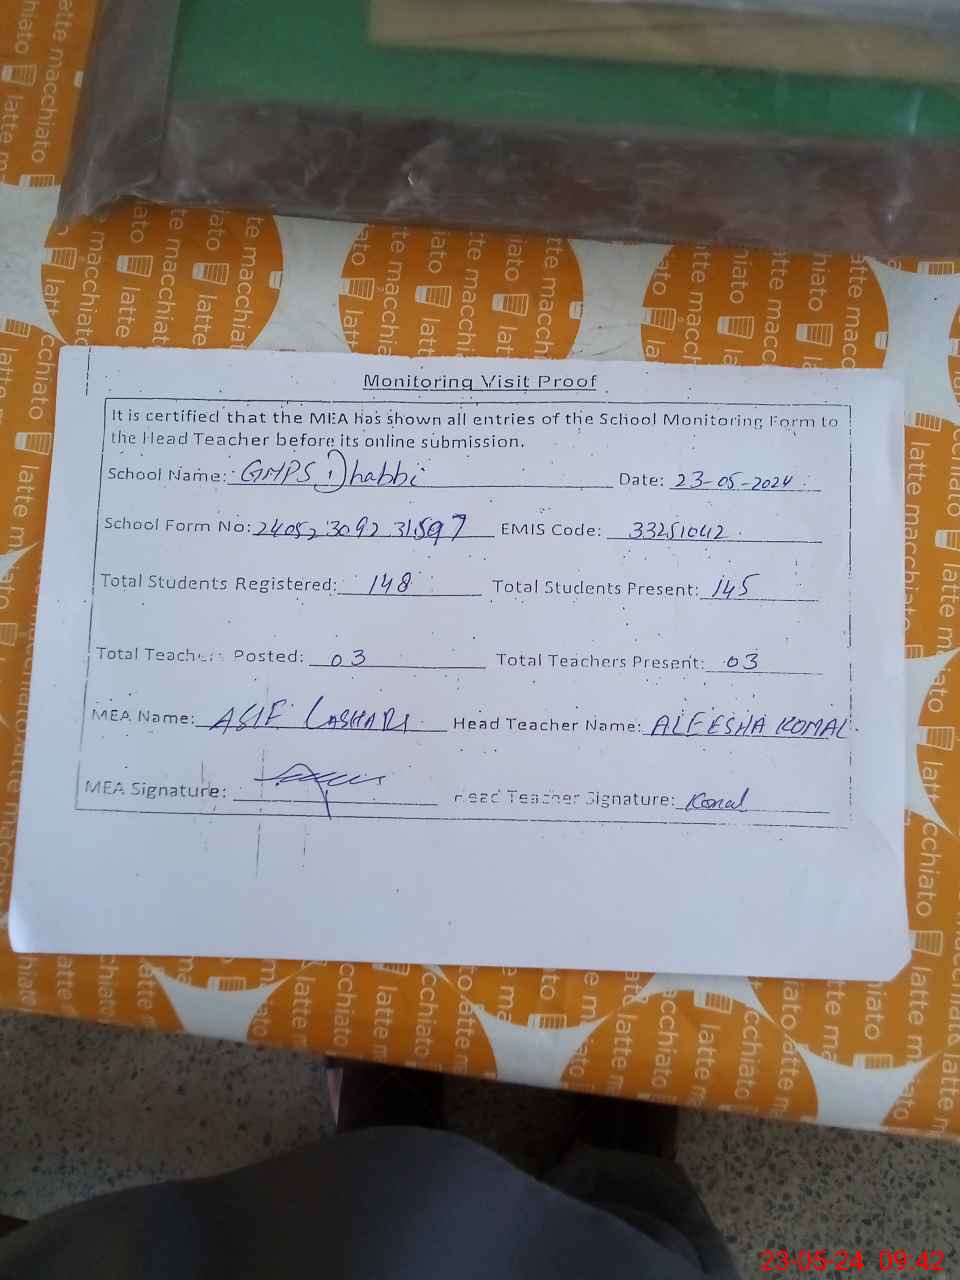 Monitoring Visit Proof
It is certified that the MEA has shown all entries of the School Monitoring Form to
the Head Teacher before its online submission.
School Name: GMPS Dhabbi Date: 23-05-2024
School Form No: 24052309231597 EMIS Code: 33251042
Total Students Registered: 148 Total Students Present: 145
Total Teachers Posted: 03 Total Teachers Present: 03
MEA Name: ASIF LASHARI Head Teacher Name: ALEESHA KOMAL
MEA Signature: Head Teacher Signature: Komal
latte macchiato
23-05-24 09:42